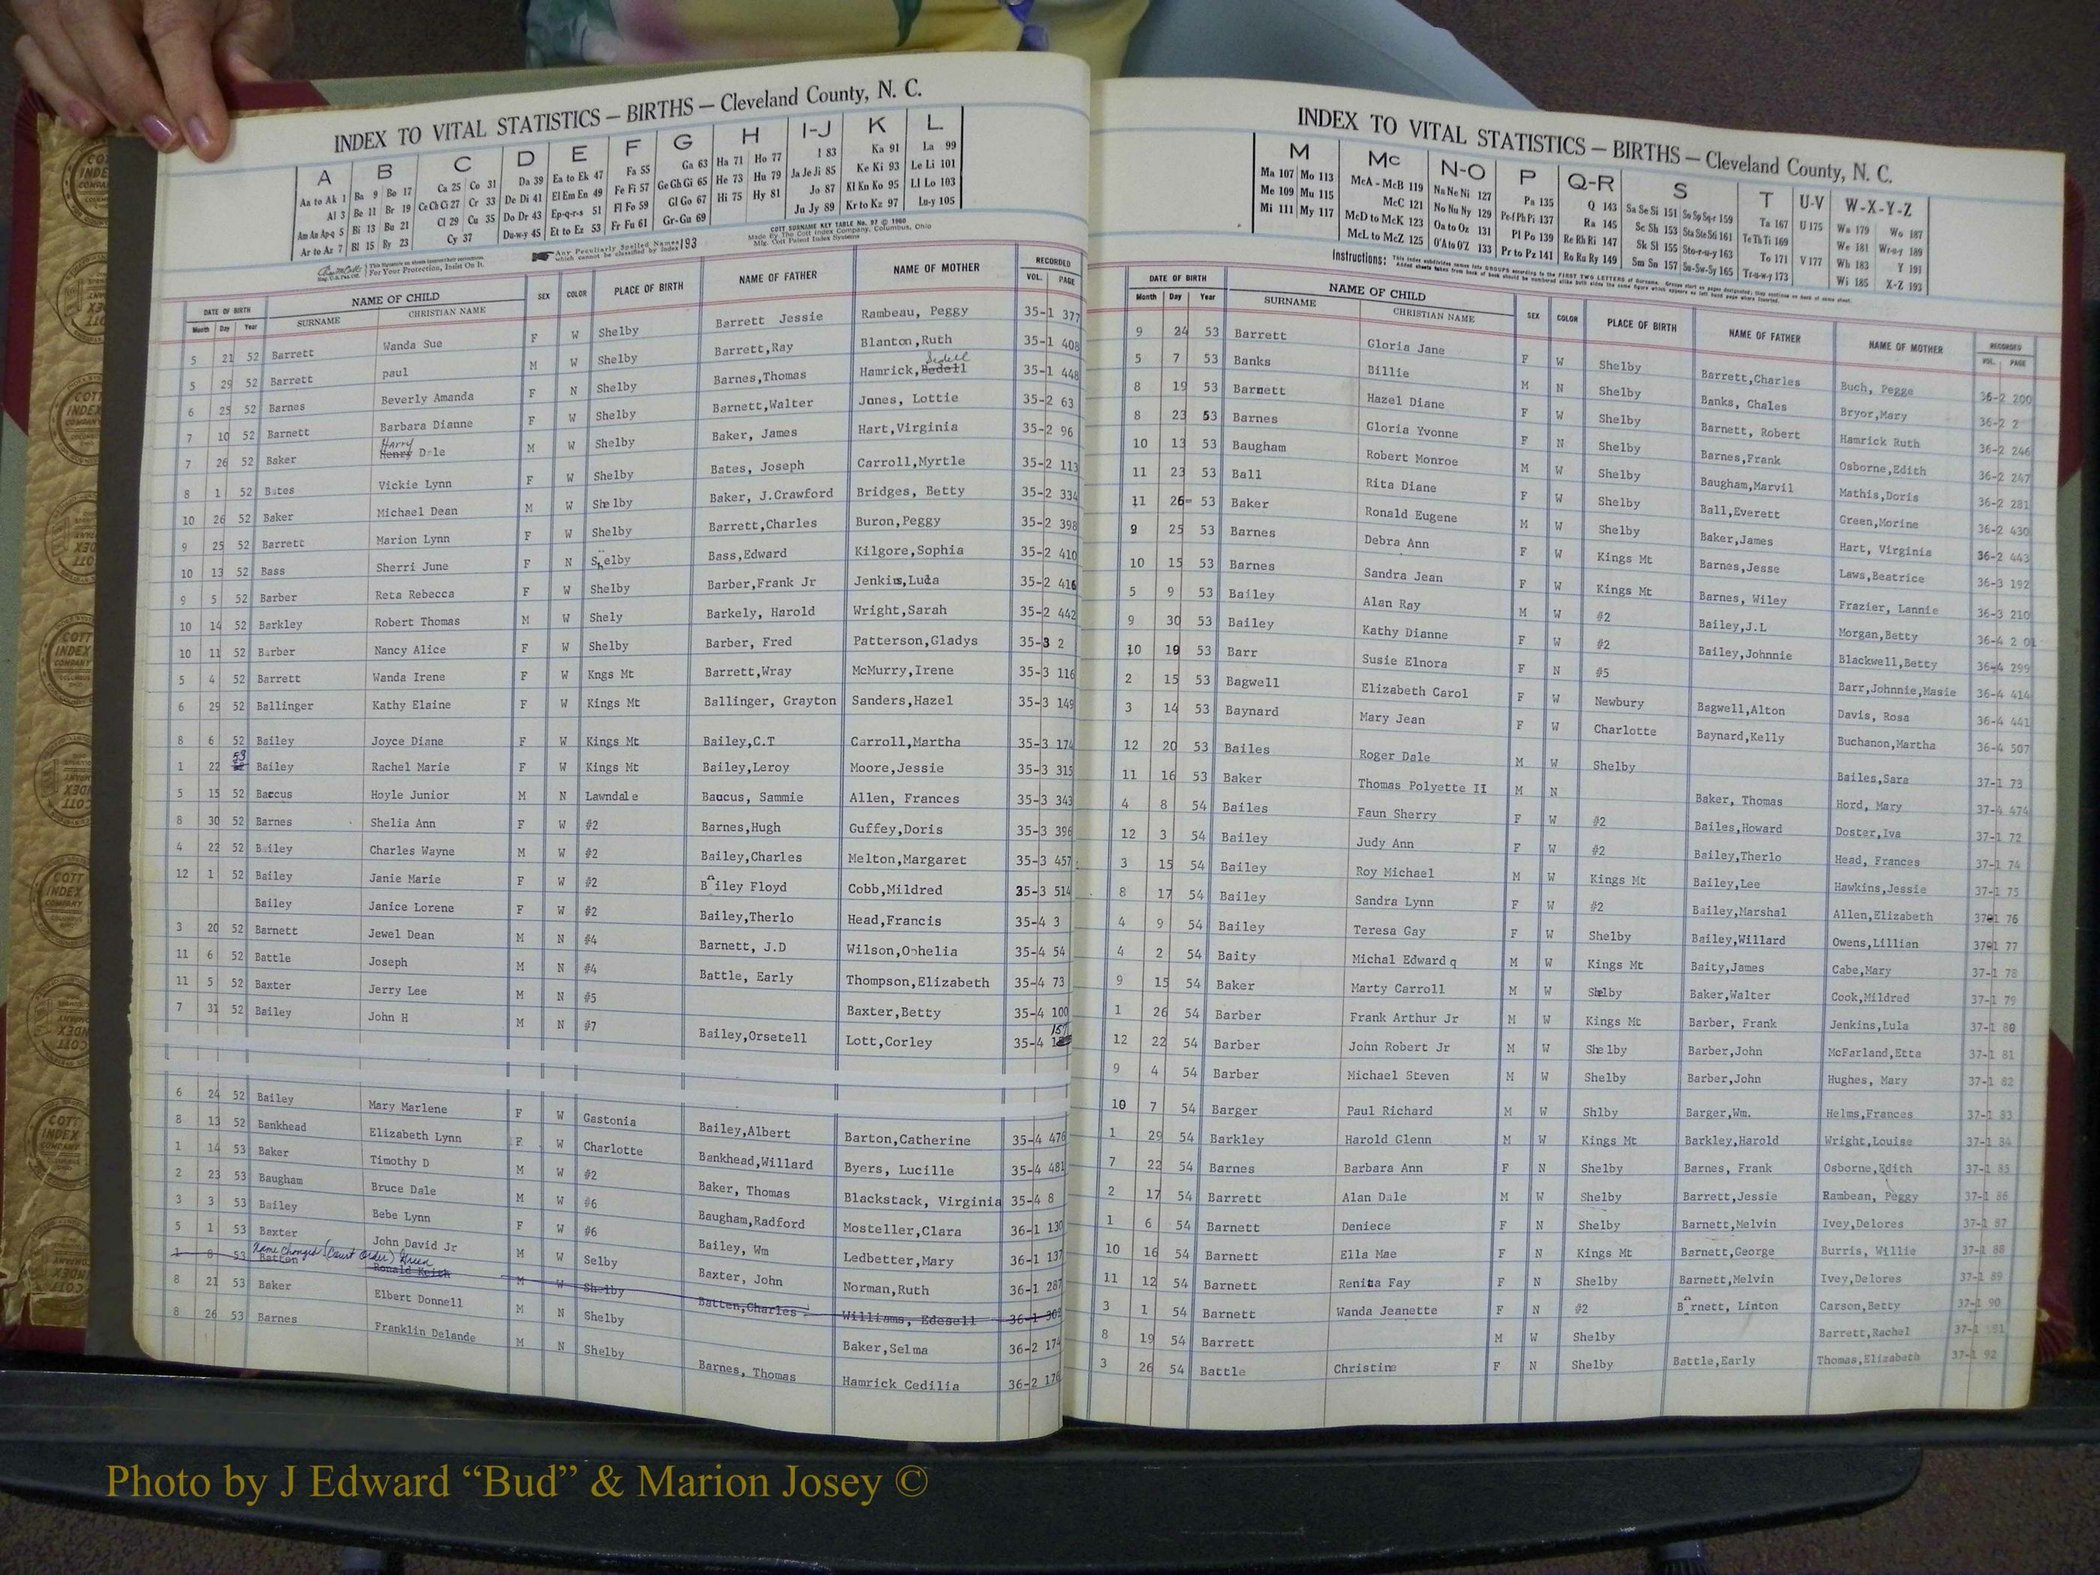 INDEX TO VITAL STATISTICS — BIRTHS — Cleveland County, N. C.
A B C D E F G H I-J K L
Aa to Ak 1 Ba 9 Bo 17 Ca 25 Co 31 Da 39 Ea to Ek 47 Fa 55 Ga 63 Ha 71 Ho 77 I 83 Ka 91 La 99
Al 3 Be 11 Br 19 Ce Ch Ci 27 Cr 33 De Di 41 El Em En 49 Fe Fi 57 Ge Gh Gi 65 He 73 Hu 79 Ja Je Ji 85 Ke Ki 93 Le Li 101
Am An Ap-q 5 Bi 13 Bu 21 Cl 29 Cu 35 Do Dr 43 Ep-q-r-s 51 Fl Fo 59 Gl Go 67 Hi 75 Hy 81 Jo 87 Kl Kn Ko 95 Ll Lo 103
Ar to Az 7 Bl 15 By 23 Cy 37 Du-w-y 45 Et to Ez 53 Fr Fu 61 Gr-Gu 69 Ju Jy 89 Kr to Kz 97 Lu-y 105
For Your Protection, Insist On It.
Any Peculiarly Spelled Names which cannot be classified by index 193
COTT SURNAME KEY TABLE No. 97 © 1960
Made By The Cott Index Company, Columbus, Ohio
Mfg. Cott Patent Index Systems
DATE OF BIRTH NAME OF CHILD SEX COLOR PLACE OF BIRTH NAME OF FATHER NAME OF MOTHER RECORDED
Month Day Year SURNAME CHRISTIAN NAME VOL. PAGE
5 21 52 Barrett Wanda Sue F W Shelby Barrett Jessie Rambeau, Peggy 35-1 377
5 29 52 Barrett paul M W Shelby Barrett,Ray Blanton,Ruth 35-1 408
6 25 52 Barnes Beverly Amanda F N Shelby Barnes,Thomas Hamrick,Bedell Sedell 35-1 448
7 10 52 Barnett Barbara Dianne F W Shelby Barnett,Walter Jones, Lottie 35-2 63
7 26 52 Baker Henry Harry D-le M W Shelby Baker, James Hart,Virginia 35-2 96
8 1 52 Bates Vickie Lynn F W Shelby Bates, Joseph Carroll,Myrtle 35-2 113
10 26 52 Baker Michael Dean M W Shelby Baker, J.Crawford Bridges, Betty 35-2 334
9 25 52 Barrett Marion Lynn F W Shelby Barrett,Charles Buron,Peggy 35-2 398
10 13 52 Bass Sherri June F N Shelby Bass,Edward Kilgore,Sophia 35-2 410
9 5 52 Barber Reta Rebecca F W Shelby Barber,Frank Jr Jenkins,Lula 35-2 416
10 14 52 Barkley Robert Thomas M W Shely Barkely, Harold Wright,Sarah 35-2 442
10 11 52 Barber Nancy Alice F W Shelby Barber, Fred Patterson,Gladys 35-3 2
5 4 52 Barrett Wanda Irene F W Kngs Mt Barrett,Wray McMurry,Irene 35-3 116
6 29 52 Ballinger Kathy Elaine F W Kings Mt Ballinger, Grayton Sanders,Hazel 35-3 149
8 6 52 Bailey Joyce Diane F W Kings Mt Bailey,C.T Carroll,Martha 35-3 174
1 22 53 Bailey Rachel Marie F W Kings Mt Bailey,Leroy Moore,Jessie 35-3 315
5 15 52 Baccus Hoyle Junior M N Lawndale Baucus, Sammie Allen, Frances 35-3 343
8 30 52 Barnes Shelia Ann F W #2 Barnes,Hugh Guffey,Doris 35-3 396
4 22 52 Bailey Charles Wayne M W #2 Bailey,Charles Melton,Margaret 35-3 457
12 1 52 Bailey Janie Marie F W #2 Bailey Floyd Cobb,Mildred 35-3 514
Bailey Janice Lorene F W #2 Bailey,Therlo Head,Francis 35-4 3
3 20 52 Barnett Jewel Dean M N #4 Barnett, J.D Wilson,Ophelia 35-4 54
11 6 52 Battle Joseph M N #4 Battle, Early Thompson,Elizabeth 35-4 73
11 5 52 Baxter Jerry Lee M N #5 Baxter,Betty 35-4 100
7 31 52 Bailey John H M N #7 Bailey,Orsetell Lott,Corley 35-4 157
6 24 52 Bailey Mary Marlene F W Gastonia Bailey,Albert Barton,Catherine 35-4 476
8 13 52 Bankhead Elizabeth Lynn F W Charlotte Bankhead,Willard Byers, Lucille 35-4 481
1 14 53 Baker Timothy D M W #2 Baker, Thomas Blackstack, Virginia 35-4 8
2 23 53 Baugham Bruce Dale M W #6 Baugham,Radford Mosteller,Clara 36-1 130
3 3 53 Bailey Bebe Lynn F W #6 Bailey, Wm Ledbetter,Mary 36-1 137
5 1 53 Baxter John David Jr M W Selby Baxter, John Norman,Ruth 36-1 287
Name Changed (Court Order) Green
1 8 53 Batten Ronald Keith M W Shelby Batten,Charles Williams, Edesell 36-1 302
8 21 53 Baker Elbert Donnell M N Shelby Baker,Selma 36-2 174
8 26 53 Barnes Franklin Delande M N Shelby Barnes, Thomas Hamrick Cedilia 36-2 176
INDEX TO VITAL STATISTICS — BIRTHS — Cleveland County, N. C.
M Mc N-O P Q-R S T U-V W-X-Y-Z
Ma 107 Mo 113 McA - McB 119 Na Ne Ni 127 Pa 135 Q 143 Sa Se Si 151 Sn Sp Sq-r 159 Ta 167 U 175 Wa 179 Wo 187
Me 109 Mu 115 McC 121 No Nu Ny 129 Pe-f Ph Pi 137 Ra 145 Sc Sh 153 Sta Ste Sti 161 Te Th Ti 169 We 181 Wr-u-y 189
Mi 111 My 117 McD to McK 123 Oa to Oz 131 Pl Po 139 Re Rh Ri 147 Sk Sl 155 Sto-r-u-y 163 To 171 V 177 Wh 183 Y 191
McL to McZ 125 O'A to O'Z 133 Pr to Pz 141 Ro Ru Ry 149 Sm Sn 157 Su-Sw-Sy 165 Tr-u-w-y 173 Wi 185 X-Z 193
Instructions: This index subdivides names into GROUPS according to the FIRST TWO LETTERS of Surname.
DATE OF BIRTH NAME OF CHILD SEX COLOR PLACE OF BIRTH NAME OF FATHER NAME OF MOTHER RECORDED
Month Day Year SURNAME CHRISTIAN NAME VOL. PAGE
9 24 53 Barrett Gloria Jane F W Shelby Barrett,Charles Buch, Pegge 36-2 200
5 7 53 Banks Billie M N Shelby Banks, Chales Bryor,Mary 36-2 2
8 19 53 Barnett Hazel Diane F W Shelby Barnett, Robert Hamrick Ruth 36-2 246
8 23 53 Barnes Gloria Yvonne F N Shelby Barnes,Frank Osborne,Edith 36-2 247
10 13 53 Baugham Robert Monroe M W Shelby Baugham,Marvil Mathis,Doris 36-2 281
11 23 53 Ball Rita Diane F W Shelby Ball,Everett Green,Morine 36-2 430
11 26- 53 Baker Ronald Eugene M W Shelby Baker,James Hart, Virginia 36-2 443
9 25 53 Barnes Debra Ann F W Kings Mt Barnes,Jesse Laws,Beatrice 36-3 192
10 15 53 Barnes Sandra Jean F W Kings Mt Barnes, Wiley Frazier, Lannie 36-3 210
5 9 53 Bailey Alan Ray M W #2 Bailey,J.L Morgan,Betty 36-4 2 01
9 30 53 Bailey Kathy Dianne F W #2 Bailey,Johnnie Blackwell,Betty 36-4 299
10 19 53 Barr Susie Elnora F N #5 Barr,Johnnie,Masie 36-4 414
2 15 53 Bagwell Elizabeth Carol F W Newbury Bagwell,Alton Davis, Rosa 36-4 441
3 14 53 Baynard Mary Jean F W Charlotte Baynard,Kelly Buchanon,Martha 36-4 507
12 20 53 Bailes Roger Dale M W Shelby Bailes,Sara 37-1 73
11 16 53 Baker Thomas Polyette II M N Baker, Thomas Hord, Mary 37-4 474
4 8 54 Bailes Faun Sherry F W #2 Bailes,Howard Doster,Iva 37-1 72
12 3 54 Bailey Judy Ann F W #2 Bailey,Therlo Head, Frances 37-1 74
3 15 54 Bailey Roy Michael M W Kings Mt Bailey,Lee Hawkins,Jessie 37-1 75
8 17 54 Bailey Sandra Lynn F W #2 Bailey,Marshal Allen,Elizabeth 37-1 76
4 9 54 Bailey Teresa Gay F W Shelby Bailey,Willard Owens,Lillian 37-1 77
4 2 54 Baity Michal Edward q M W Kings Mt Baity,James Cabe,Mary 37-1 78
9 15 54 Baker Marty Carroll M W Shelby Baker,Walter Cook,Mildred 37-1 79
1 26 54 Barber Frank Arthur Jr M W Kings Mt Barber, Frank Jenkins,Lula 37-1 80
12 22 54 Barber John Robert Jr M W Shelby Barber,John McFarland,Etta 37-1 81
9 4 54 Barber Michael Steven M W Shelby Barber,John Hughes, Mary 37-1 82
10 7 54 Barger Paul Richard M W Shlby Barger,Wm. Helms,Frances 37-1 83
1 29 54 Barkley Harold Glenn M W Kings Mt Barkley,Harold Wright,Louise 37-1 84
7 22 54 Barnes Barbara Ann F N Shelby Barnes, Frank Osborne,Edith 37-1 85
2 17 54 Barrett Alan Dale M W Shelby Barrett,Jessie Rambean, Peggy 37-1 86
1 6 54 Barnett Deniece F N Shelby Barnett,Melvin Ivey,Delores 37-1 87
10 16 54 Barnett Ella Mae F N Kings Mt Barnett,George Burris, Willie 37-1 88
11 12 54 Barnett Renita Fay F N Shelby Barnett,Melvin Ivey,Delores 37-1 89
3 1 54 Barnett Wanda Jeanette F N #2 Barnett, Linton Carson,Betty 37-1 90
8 19 54 Barrett M W Shelby Barrett,Rachel 37-1 91
3 26 54 Battle Christine F N Shelby Battle,Early Thomas,Elizabeth 37-1 92
Photo by J Edward “Bud” & Marion Josey ©